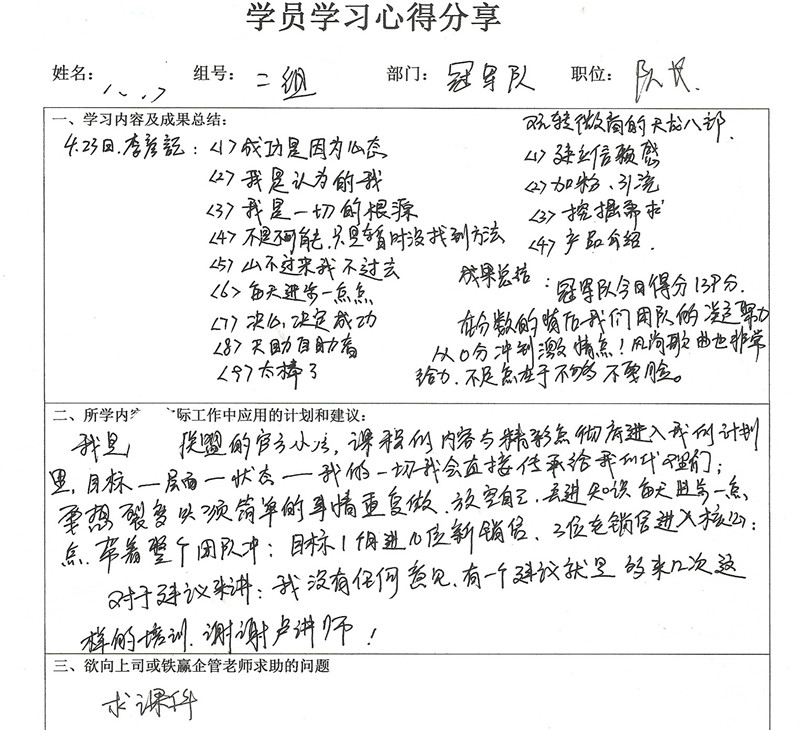 学员学习心得分享
姓名： 组号：二组 部门：冠军队 职位：队长.
一、学习内容及成果总结：
4.23日.李彦記：<1>成功是因为心态
<2>我是认为的我
<3>我是一切的根源
<4>不是不可能,只是暂时没找到方法
<5>山不过来我不过去
<6>每天进步一点点
<7>决心,决定成功
<8>天助自助者
<9>太棒了
玩转微商的天龙八部.
<1>建立信赖感
<2>加粉、引流
<3>挖掘需求
<4>产品介绍.
成果总结：冠军队今日得分139分.
在分数的背后我们团队的凝聚力
从0分冲到激情点！风尚歌曲也非常
给力.不足点在于不够不要脸。
二、所学内 际工作中应用的计划和建议：
我是 联盟的官方小 ，课程的内容与精彩点彻底进入我们计划
里,目标一层面一状态一我的一切我会直接传承给我们代理们；
要想裂变必须简单的事情重复做.放空自己. 进知识每天进步一点
点.带着整个团队冲：目标1个月进 位新销售.3位老销售进入核心；
对于建议来讲：我没有任何意见.有一个建议就是多来几次这
样的培训.谢谢卢讲师！
三、欲向上司或铁赢企管老师求助的问题
求课件